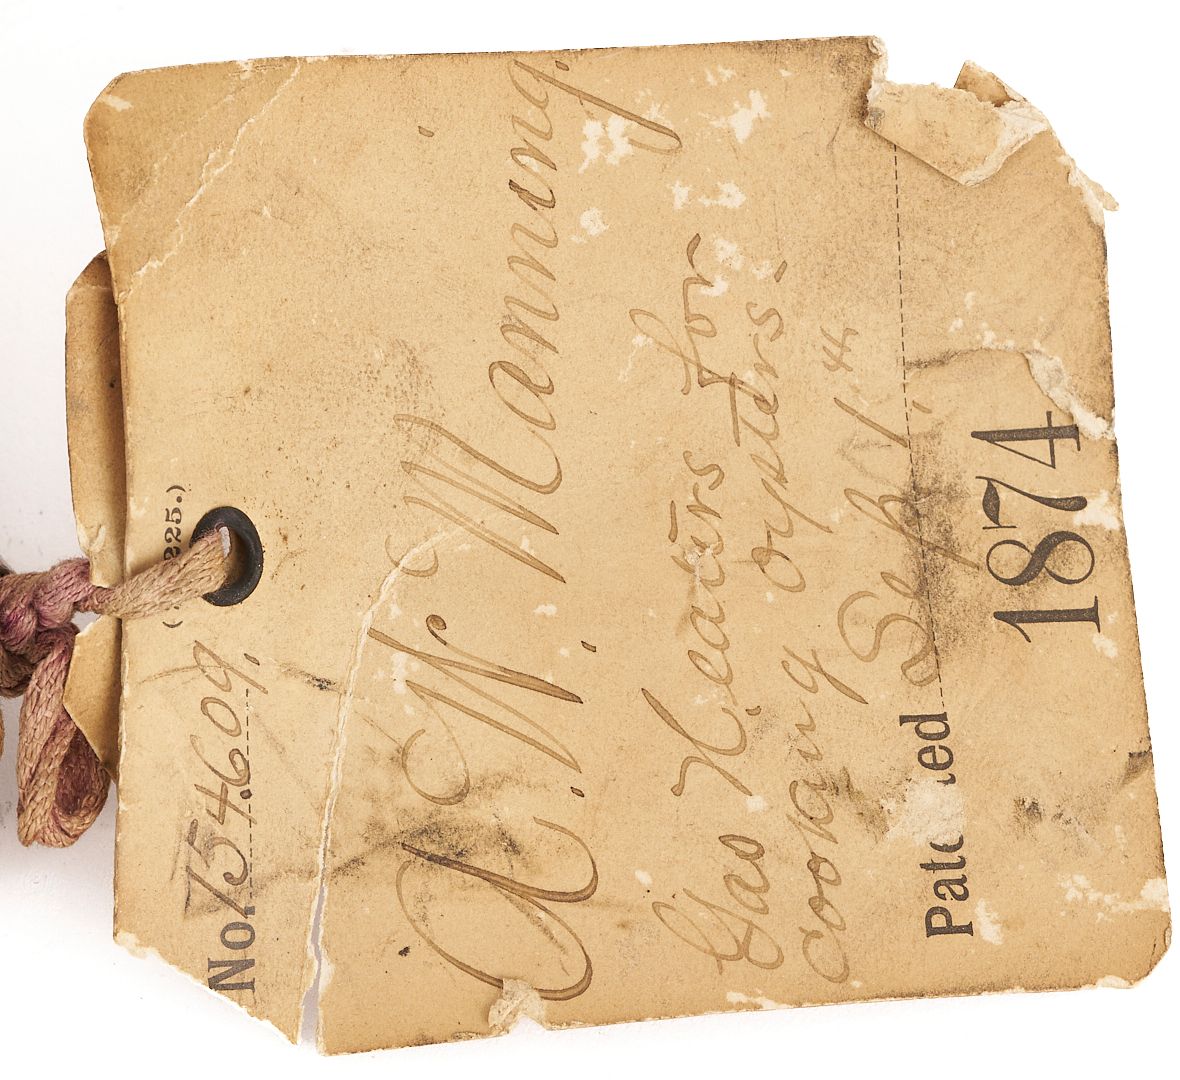 225.)
No. 154.609.
A. W. Manning.
Gas Heaters for
cooking oysters.
Patented Sept. 1.th
1874